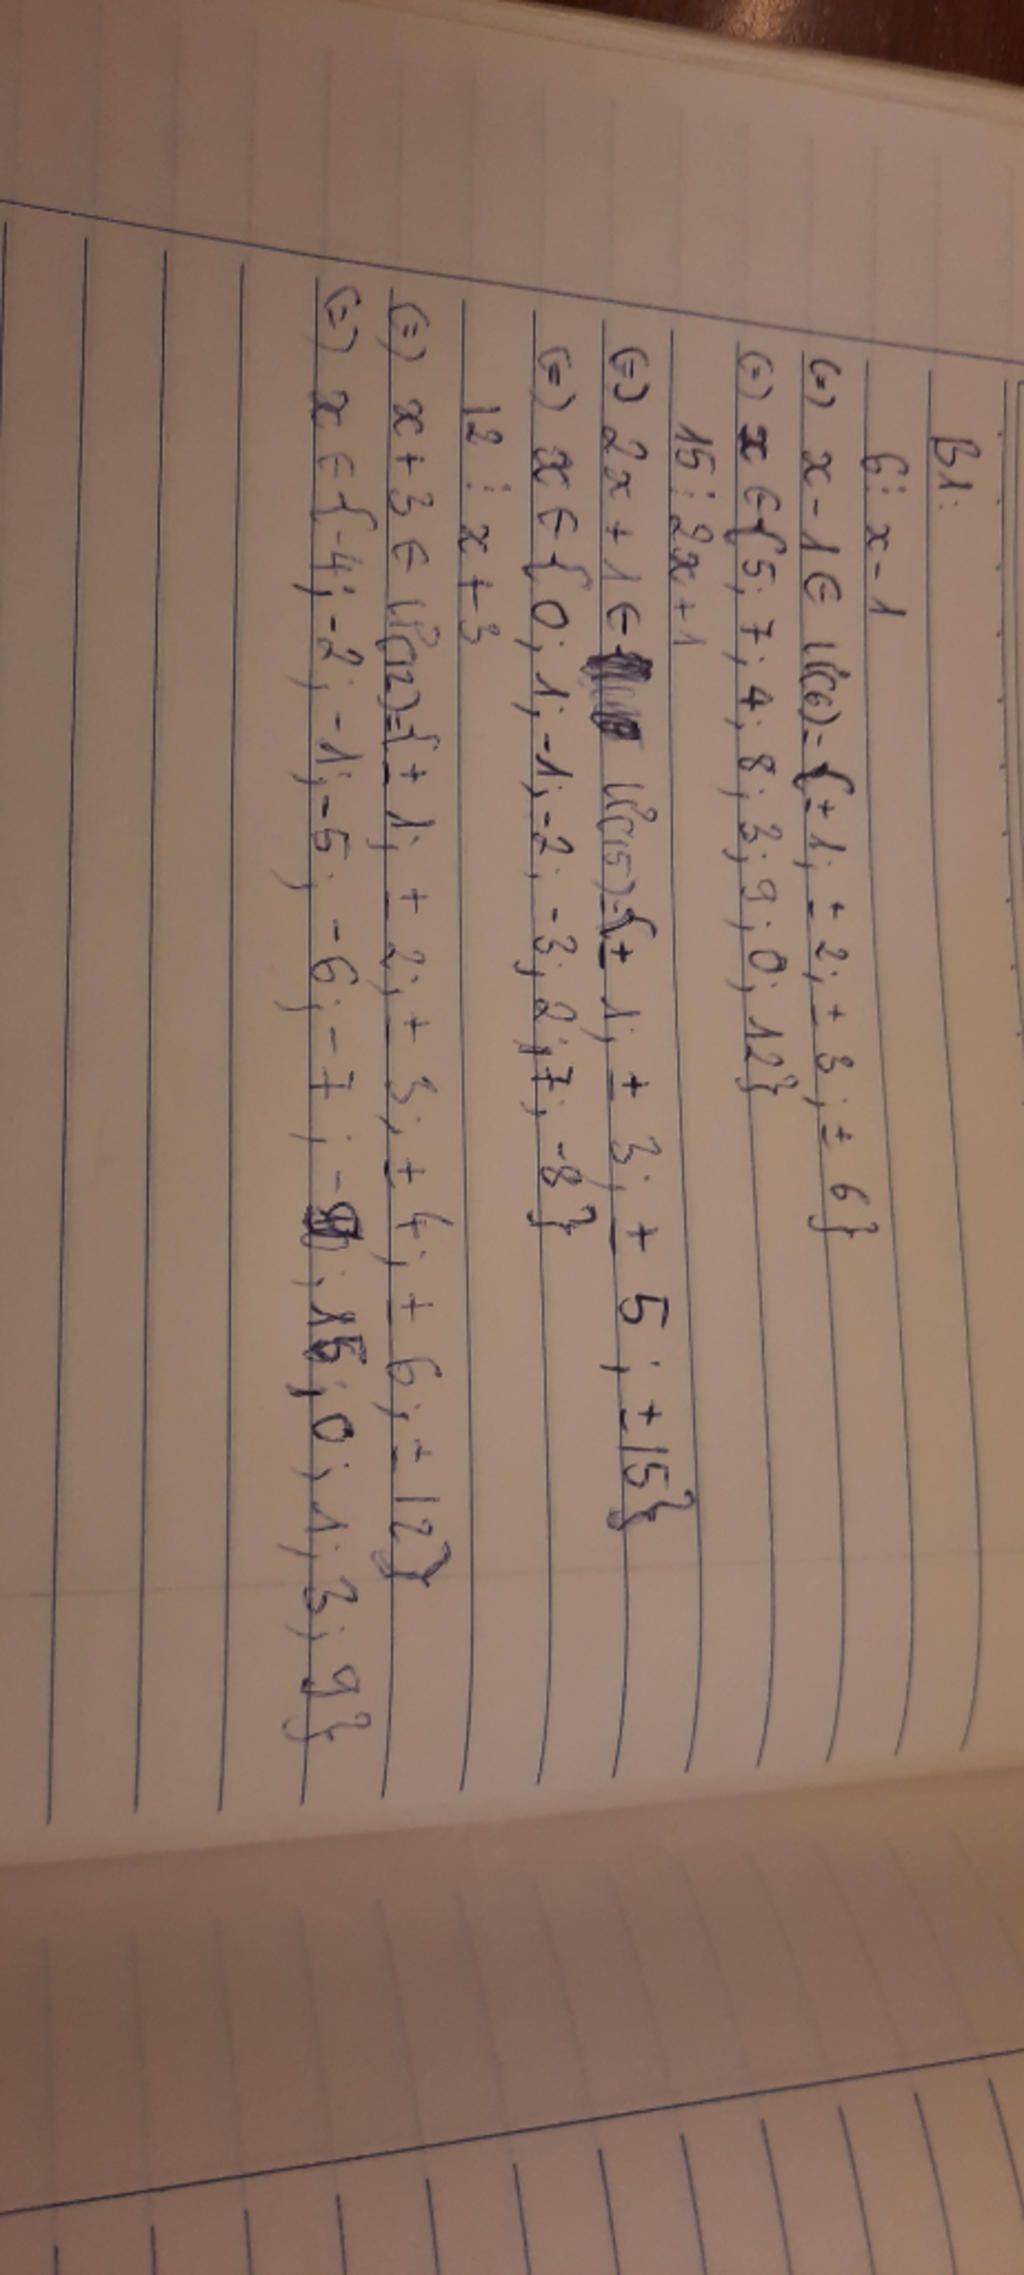 B1:
6 ⋮ x - 1
(=) x - 1 ∈ Ư(6) = {± 1; ± 2; ± 3; ± 6}
(=) x ∈ {5; 7; 4; 8; 3; 9; 0; 12}
15 ⋮ 2x + 1
(=) 2x + 1 ∈ Ư(15) = {± 1; ± 3; ± 5; ± 15}
(=) x ∈ {0; 1; -1; -2; -3; 2; 7; -8}
12 ⋮ x + 3
(=) x + 3 ∈ Ư(12) = {± 1; ± 2; ± 3; ± 4; ± 6; ± 12}
(=) x ∈ {-4; -2; -1; -5; -6; -7; - ; 15; 0; 1; 3; 9}